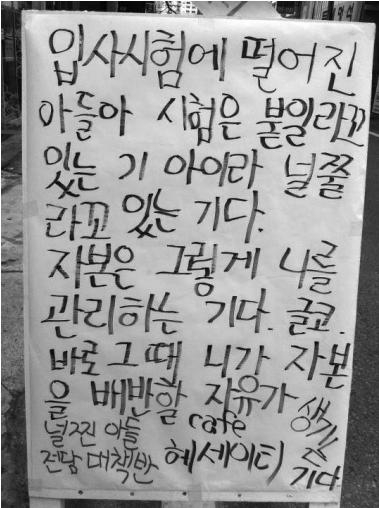 입사시험에 떨어진
아들아 시험은 붙일라꼬
있는 기 아이라 널쭐
라꼬 있는 기다.
자본은 그렇게 니를
관리하는 기다. 글코.
바로 그 때 니가 자본
을 배반할 자유가 생기는
기다
널찐 아들
전담 대책반
cafe
헤세이티